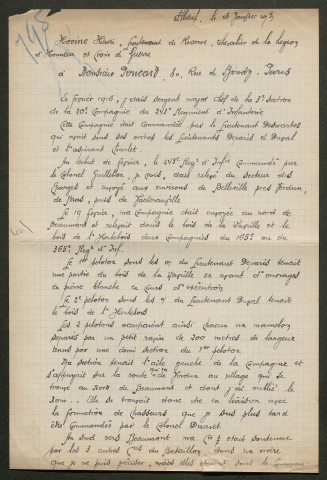 le 18 Janvier 193
Hovine Henri, Lieutenant de Réserve, Chevalier de la Légion
d'Honneur et Croix d'Guerre
à Monsieur Rue de Bondy. Paris
En février 1916, j'étais sergent major Chef de la 3e Section
de la 20e Compagnie du 243e Régiment d'Infanterie
Cette Compagnie était commandée par le Lieutenant
qui avait sous ses ordres les Lieutenants Deparis et Dupal
et l'aspirant Charlet.
Au début de février, le 243e Régt d'Infie Commandé par
le Colonel je crois, était relevé du Secteur des
Eparges et envoyé aux environs de Belleville près Verdun,
de Bras, puis de Vacherauville
Le 19 février, ma Compagnie était envoyée au nord de
Beaumont et relevait dans le bois de la Wavrille et le
bois de l'Herbebois deux Compagnies du 165e ou du
365e Régt d'Inf.
Le 1er peloton sous les o/ du Lieutenant Deparis tenait
une partie du bois de la Wavrille en ayant d'ouvrages
en pierre blanche en cours d'exécution
Le 2e peloton sous les o/ du Lieutenant Dupal tenait
le bois de l'Herbebois
Les 2 pelotons occupaient ainsi chacun un mamelon
séparés par un petit ravin de 200 mètres de largeur
tenus par une demi section du 1er peloton
Ma section tenait l'aile gauche de la Compagnie et
s'appuyait sur la route qui va de Verdun au village qui se
trouve au Nord de Beaumont et dont j'ai oublié le
nom. Elle se trouvait donc être en liaison avec
la formation de Chasseurs que je sus plus tard
être Commandée par le Colonel Driant.
Au Sud vers Beaumont ma Cie était soutenue
par les 3 autres Cies du Bataillon dans un ordre
que je ne puis préciser,